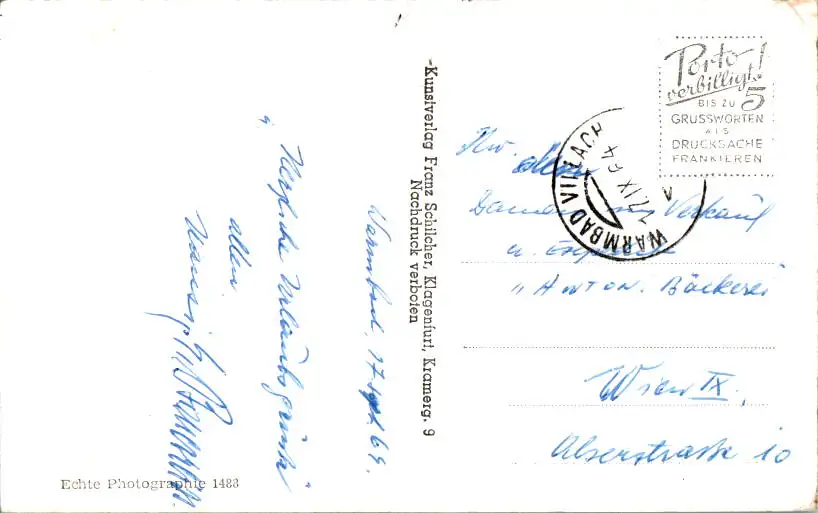 Warmbad, 17. Sept. 64.
„Herzliche Urlaubsgrüsse"
allen
-Kunstverlag Franz Schilcher, Klagenfurt, Kramerg. 9
Nachdruck verboten
Echte Photographie 1483
Porto
verbilligt!
BIS ZU 5
GRUSSWORTEN
ALS
DRUCKSACHE
FRANKIEREN
WARMBAD VILLACH
17.IX 64
An die
Damen Verkauf
u.
„ANTON" Bäckerei
Wien IX,
Alserstrasse 10